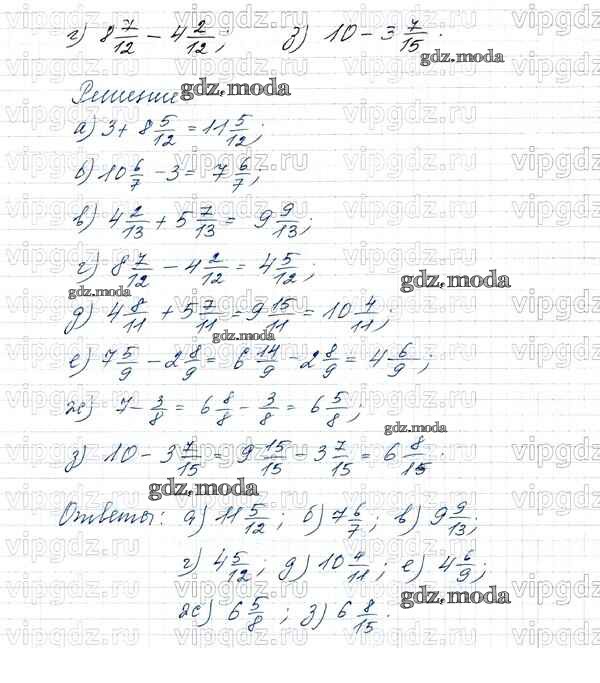 г) 8 7/12 - 4 2/12; з) 10 - 3 7/15.
gdz.moda
Решение gdz.moda
а) 3 + 8 5/12 = 11 5/12;
б) 10 6/7 - 3 = 7 6/7;
в) 4 2/13 + 5 7/13 = 9 9/13;
г) 8 7/12 - 4 2/12 = 4 5/12;
gdz.moda gdz.moda
д) 4 8/11 + 5 7/11 = 9 15/11 = 10 4/11;
gdz.moda
е) 7 5/9 - 2 8/9 = 6 14/9 - 2 8/9 = 4 6/9;
ж) 7 - 3/8 = 6 8/8 - 3/8 = 6 5/8;
gdz.moda
з) 10 - 3 7/15 = 9 15/15 - 3 7/15 = 6 8/15.
gdz.moda
Ответы: а) 11 5/12; б) 7 6/7; в) 9 9/13;
г) 4 5/12; д) 10 4/11; е) 4 6/9;
gdz.moda
ж) 6 5/8; з) 6 8/15.
vipgdz.ru